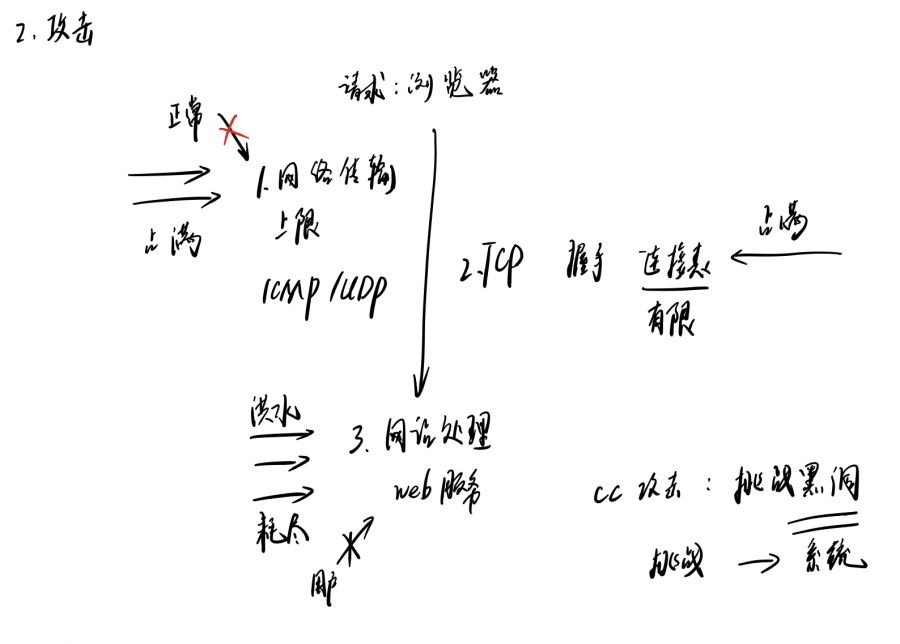 2. 攻击
请求:浏览器
正常
1. 网络传输
上限
占满
ICMP/UDP
占满
2. TCP 握手 连接表
有限
洪水
3. 网站处理
web服务
耗尽
用户
cc 攻击:挑战黑洞
挑战 → 系统